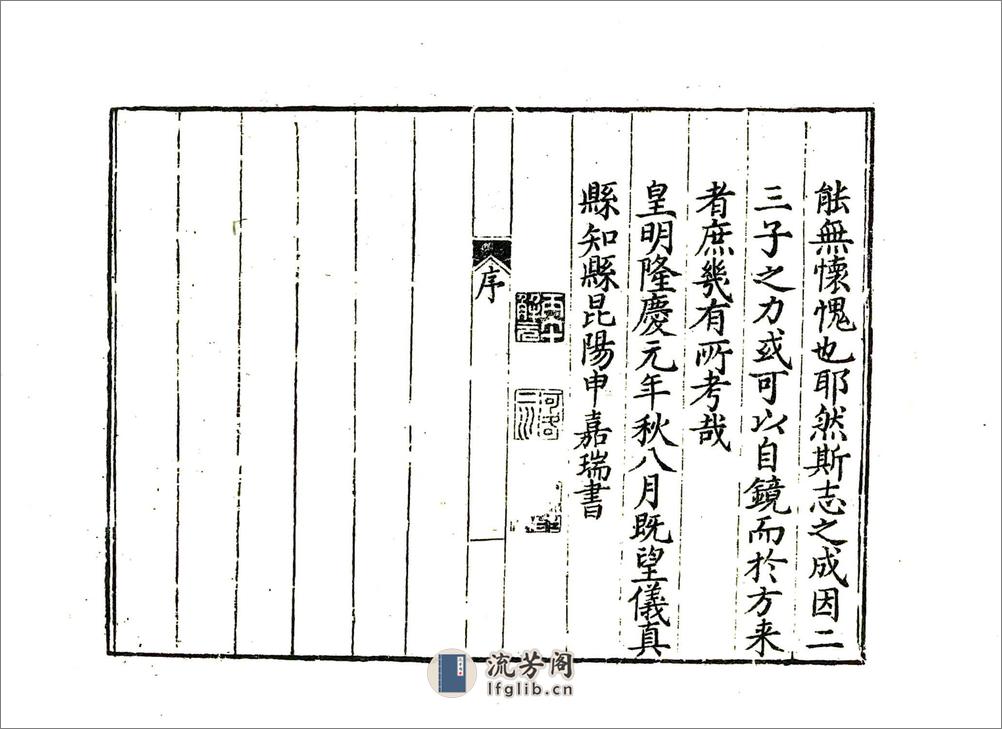 能無懷愧也耶然斯志之成因二
三子之力或可以自鏡而於方来
者庶幾有所考哉
皇明隆慶元年秋八月既望儀真
縣知縣昆陽申嘉瑞書
序
流芳阁
lfglib.cn